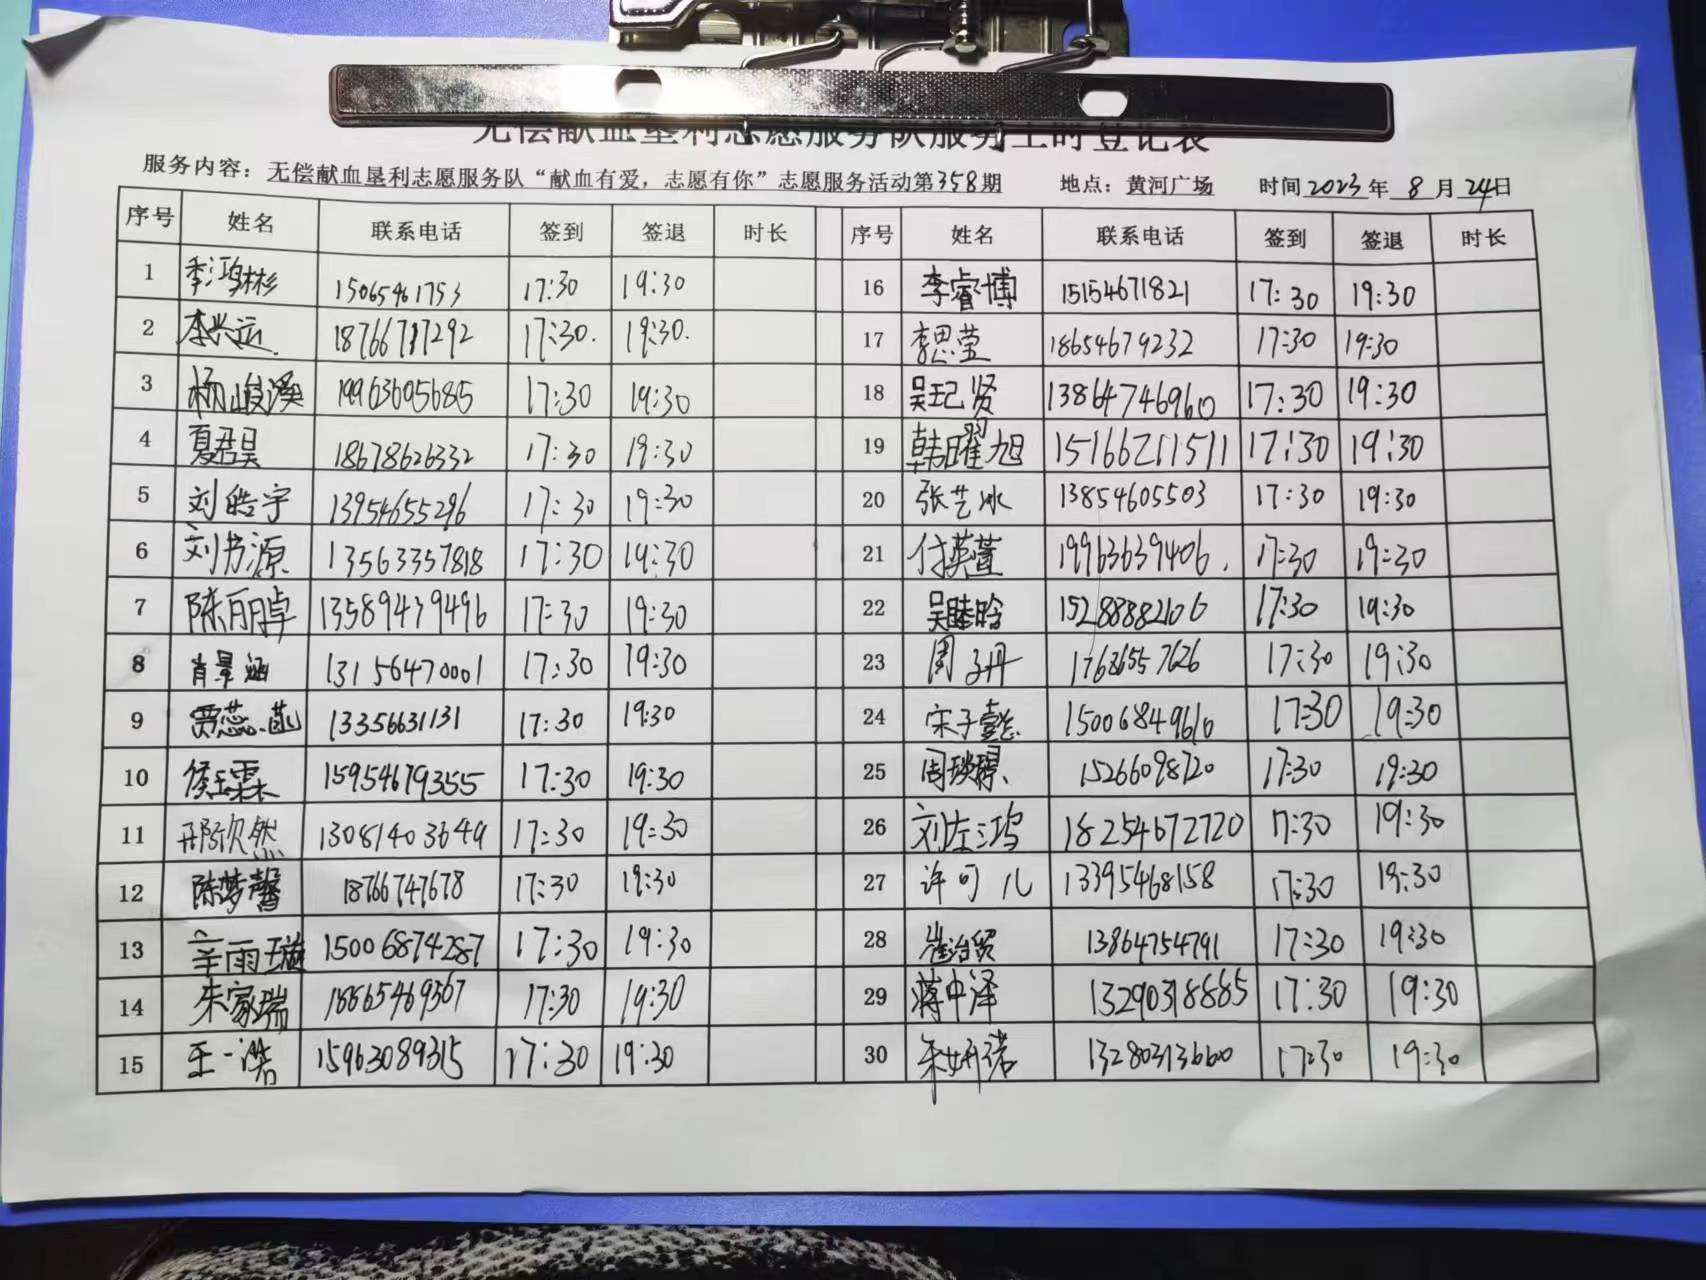 无偿献血垦利志愿服务队服务工时登记表
服务内容：无偿献血垦利志愿服务队“献血有爱，志愿有你”志愿服务活动第358期 地点：黄河广场 时间2023年8月24日
序号 姓名 联系电话 签到 签退 时长 序号 姓名 联系电话 签到 签退 时长
1 季鸿彬 15065461753 17:30 19:30 16 李睿博 15154671821 17:30 19:30
2 李兴运 18766717292 17:30. 19:30. 17 李思莹 18654679232 17:30 19:30
3 杨峻溪 19963605685 17:30 19:30 18 吴玘贤 13864746960 17:30 19:30
4 夏君昊 18678626332 17:30 19:30 19 韩曜旭 15166211511 17:30 19:30
5 刘皓宇 13954655296 17:30 19:30 20 张艺冰 13854605503 17:30 19:30
6 刘书源 13563357818 17:30 19:30 21 付英萱 19963639406. 17:30 19:30
7 陈丽卓 13589439496 17:30 19:30 22 吴睦晗 15288882106 17:30 19:30
8 肖景涵 13156470001 17:30 19:30 23 周子丹 17686557626 17:30 19:30
9 贾蕊菡 13356631131 17:30 19:30 24 宋子懿 15006849610 17:30 19:30
10 侯玉霖 15954679355 17:30 19:30 25 15266098720 17:30 19:30
11 邢欣然 13081403649 17:30 19:30 26 刘左鸿 18254672720 17:30 19:30
12 陈梦馨 18766747678 17:30 19:30 27 许可儿 13395468158 17:30 19:30
13 辛雨璇 15006874287 17:30 19:30 28 崔治贸 13864754791 17:30 19:30
14 朱家瑞 18865469567 17:30 19:30 29 蒋中泽 13290318885 17:30 19:30
15 王一浩 15963089315 17:30 19:30 30 朱妍诺 13280313660 17:30 19:30